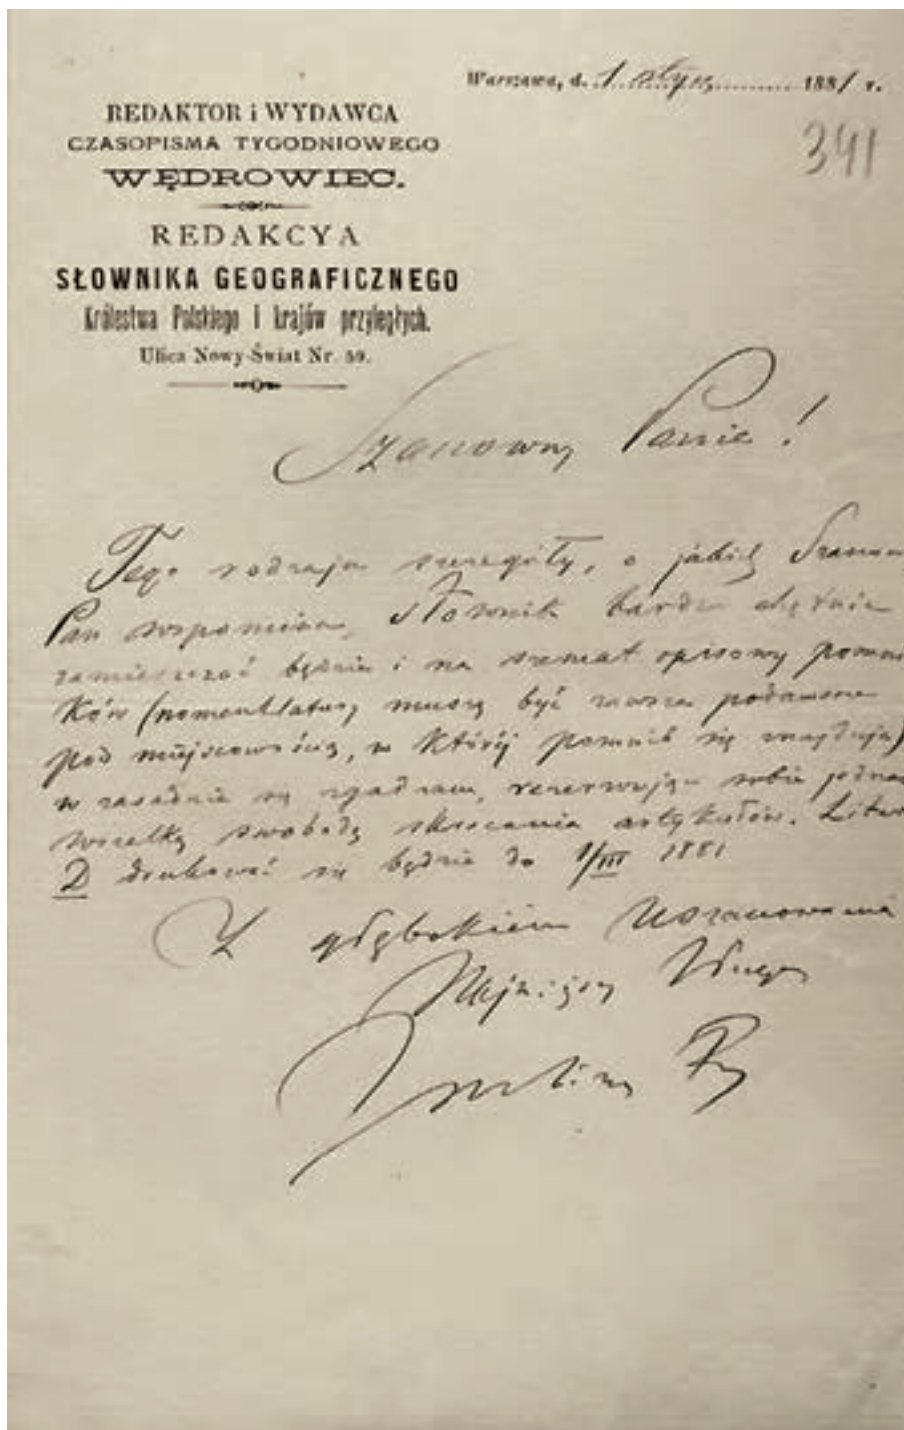 Warszawa, d. 1 stycz 1881 r.
341
REDAKTOR i WYDAWCA
CZASOPISMA TYGODNIOWEGO
WĘDROWIEC.
REDAKCYA
SŁOWNIKA GEOGRAFICZNEGO
Królestwa Polskiego i krajów przyległych.
Ulica Nowy-Świat Nr. 59.
Szanowny Panie!
Tego rodzaju szczegóły, o jakich Szanow
Pan wspomina, Słownik bardzo chętnie
zamieszczać będzie i na szemat opisowy pomni
ków (nomenklatura musi być zawsze podawana
pod miejscowością, w której pomnik się znajduje)
w zasadzie się zgadzam, rezerwując sobie jednak
wszelką swobodę skracania artykułów. Litera
D drukować się będzie do 1/III 1881
Z głębokiem uszanowaniem
Najniższy sługa